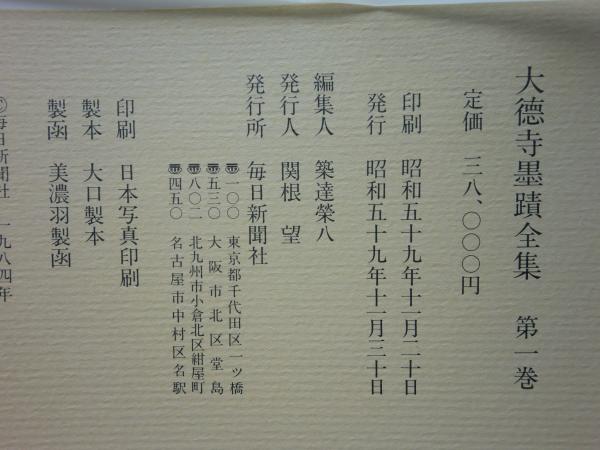 大徳寺墨蹟全集 第一巻
定価 三八、〇〇〇円
印刷 昭和五十九年十一月二十日
発行 昭和五十九年十一月三十日
編集人 築達榮八
発行人 関根 望
発行所 毎日新聞社
〒一〇〇 東京都千代田区一ツ橋
〒五三〇 大阪市北区堂島
〒八〇二 北九州市小倉北区紺屋町
〒四五〇 名古屋市中村区名駅
印刷 日本写真印刷
製本 大口製本
製函 美濃羽製函
©毎日新聞社 一九八四年